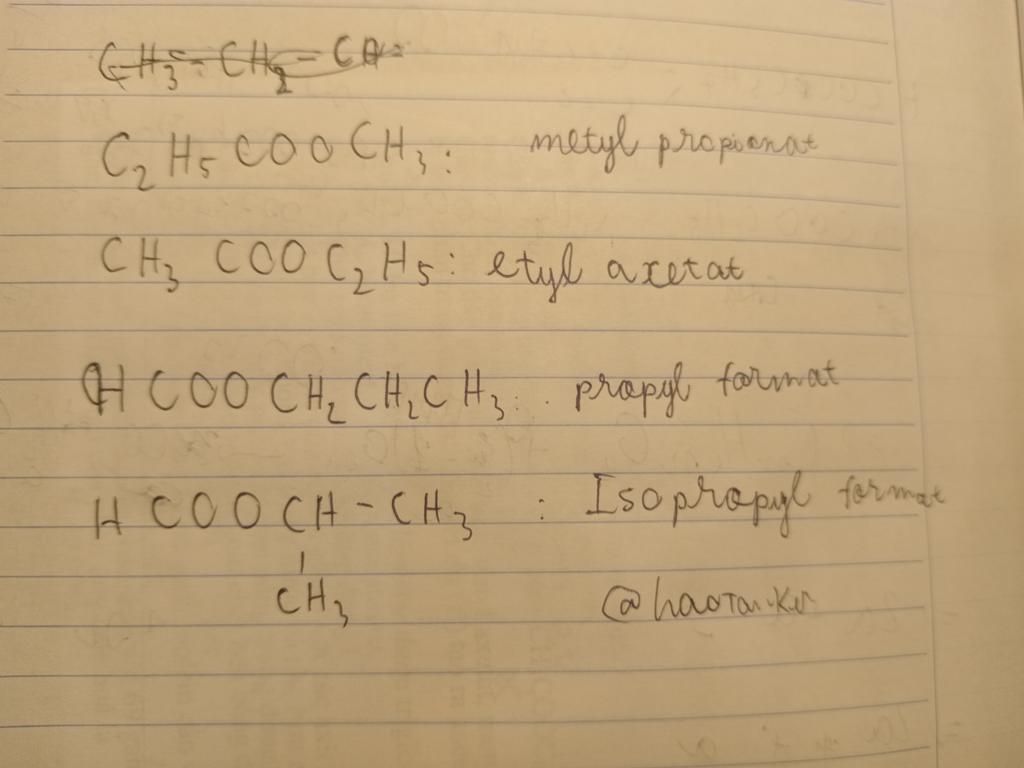 C2H5COOCH3: metyl propionat
CH3 COOC2H5: etyl axetat
HCOOCH2CH2CH3: propyl format
HCOOCH-CH3 : Isopropyl format
CH3